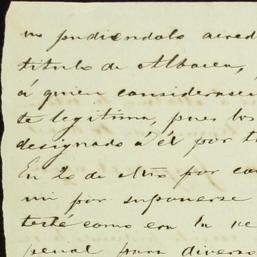 no pudiendolo acred
titulo de Albacea,
á quien considerasen
te legitima, pues los
designado á él por t
En 20 de Mio por co
mi por suponerse
testé como era la ve
penal para diverso